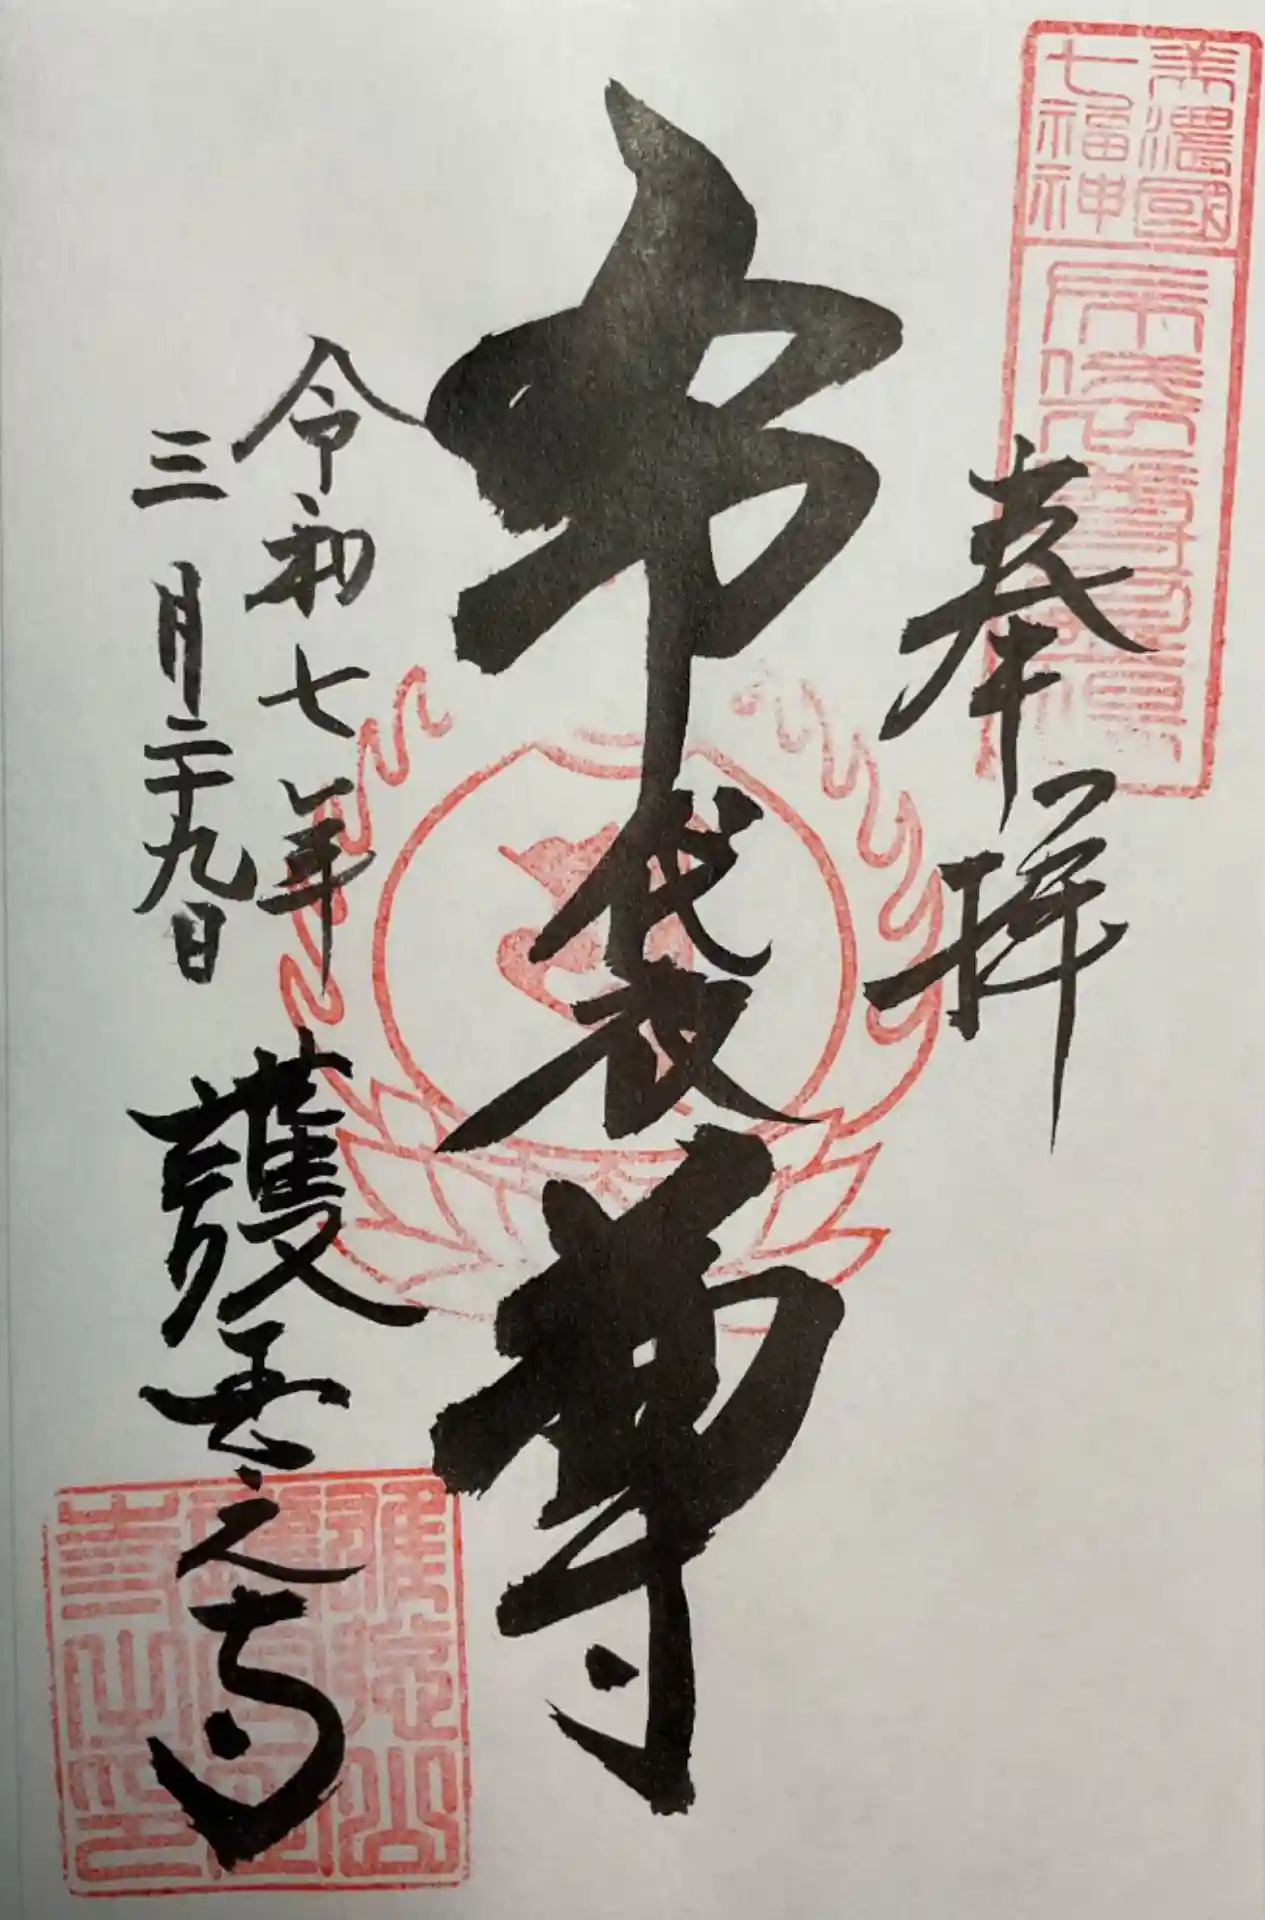 美濃國
七福神
布袋尊霊場
奉拝
布袋尊
令和七年
三月二十九日
護国之寺